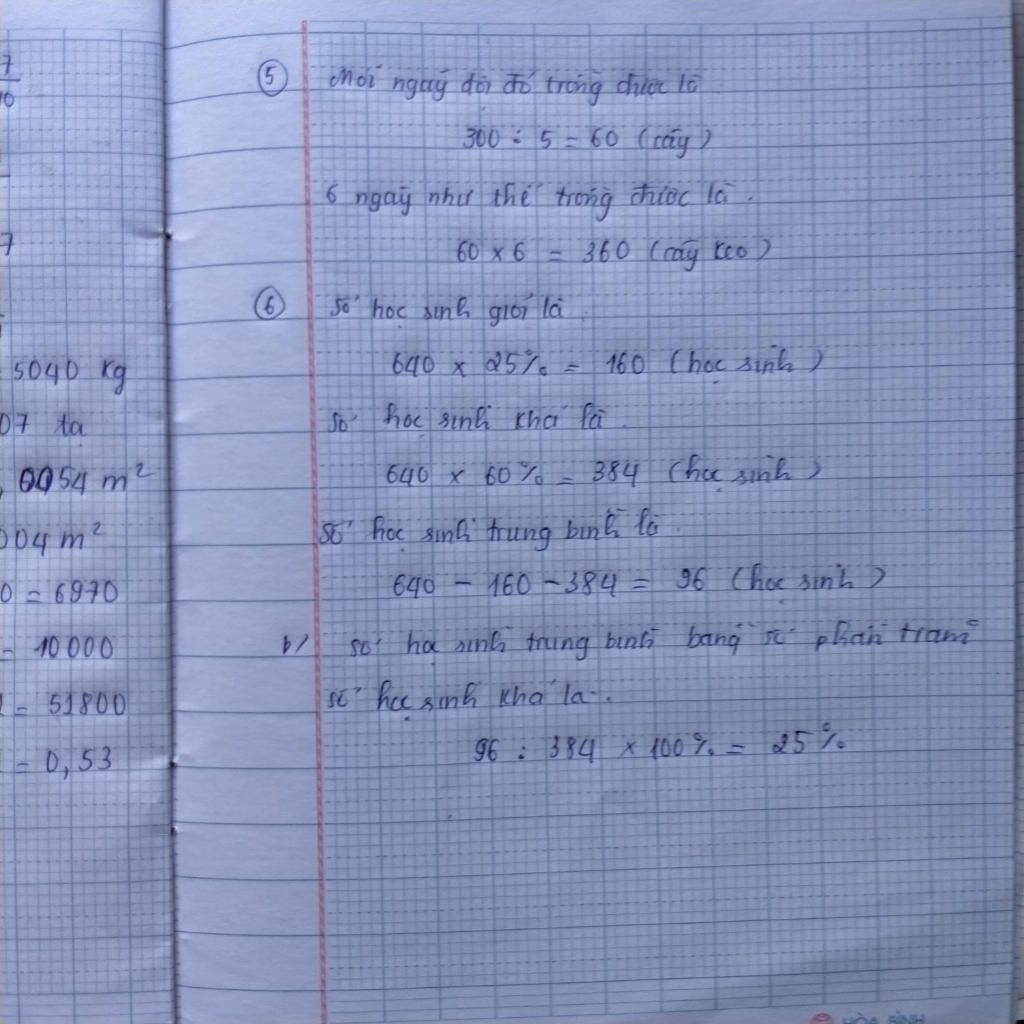 7
10
7
5040 kg
07 ta
0054 m²
004 m²
0 = 6970
= 10000
= 51800
= 0,53
⑤ Mỗi ngày đội đó trồng được là
300 : 5 = 60 (cây)
6 ngày như thế trồng được là.
60 x 6 = 360 (cây keo)
⑥ Số học sinh giỏi là.
640 x 25% = 160 (học sinh)
Số học sinh khá là.
640 x 60% = 384 (học sinh)
Số học sinh trung bình là.
640 - 160 - 384 = 96 (học sinh)
b/ Số học sinh trung bình bằng số phần trăm
số học sinh khá là.
96 : 384 x 100% = 25%
HÒA BÌNH